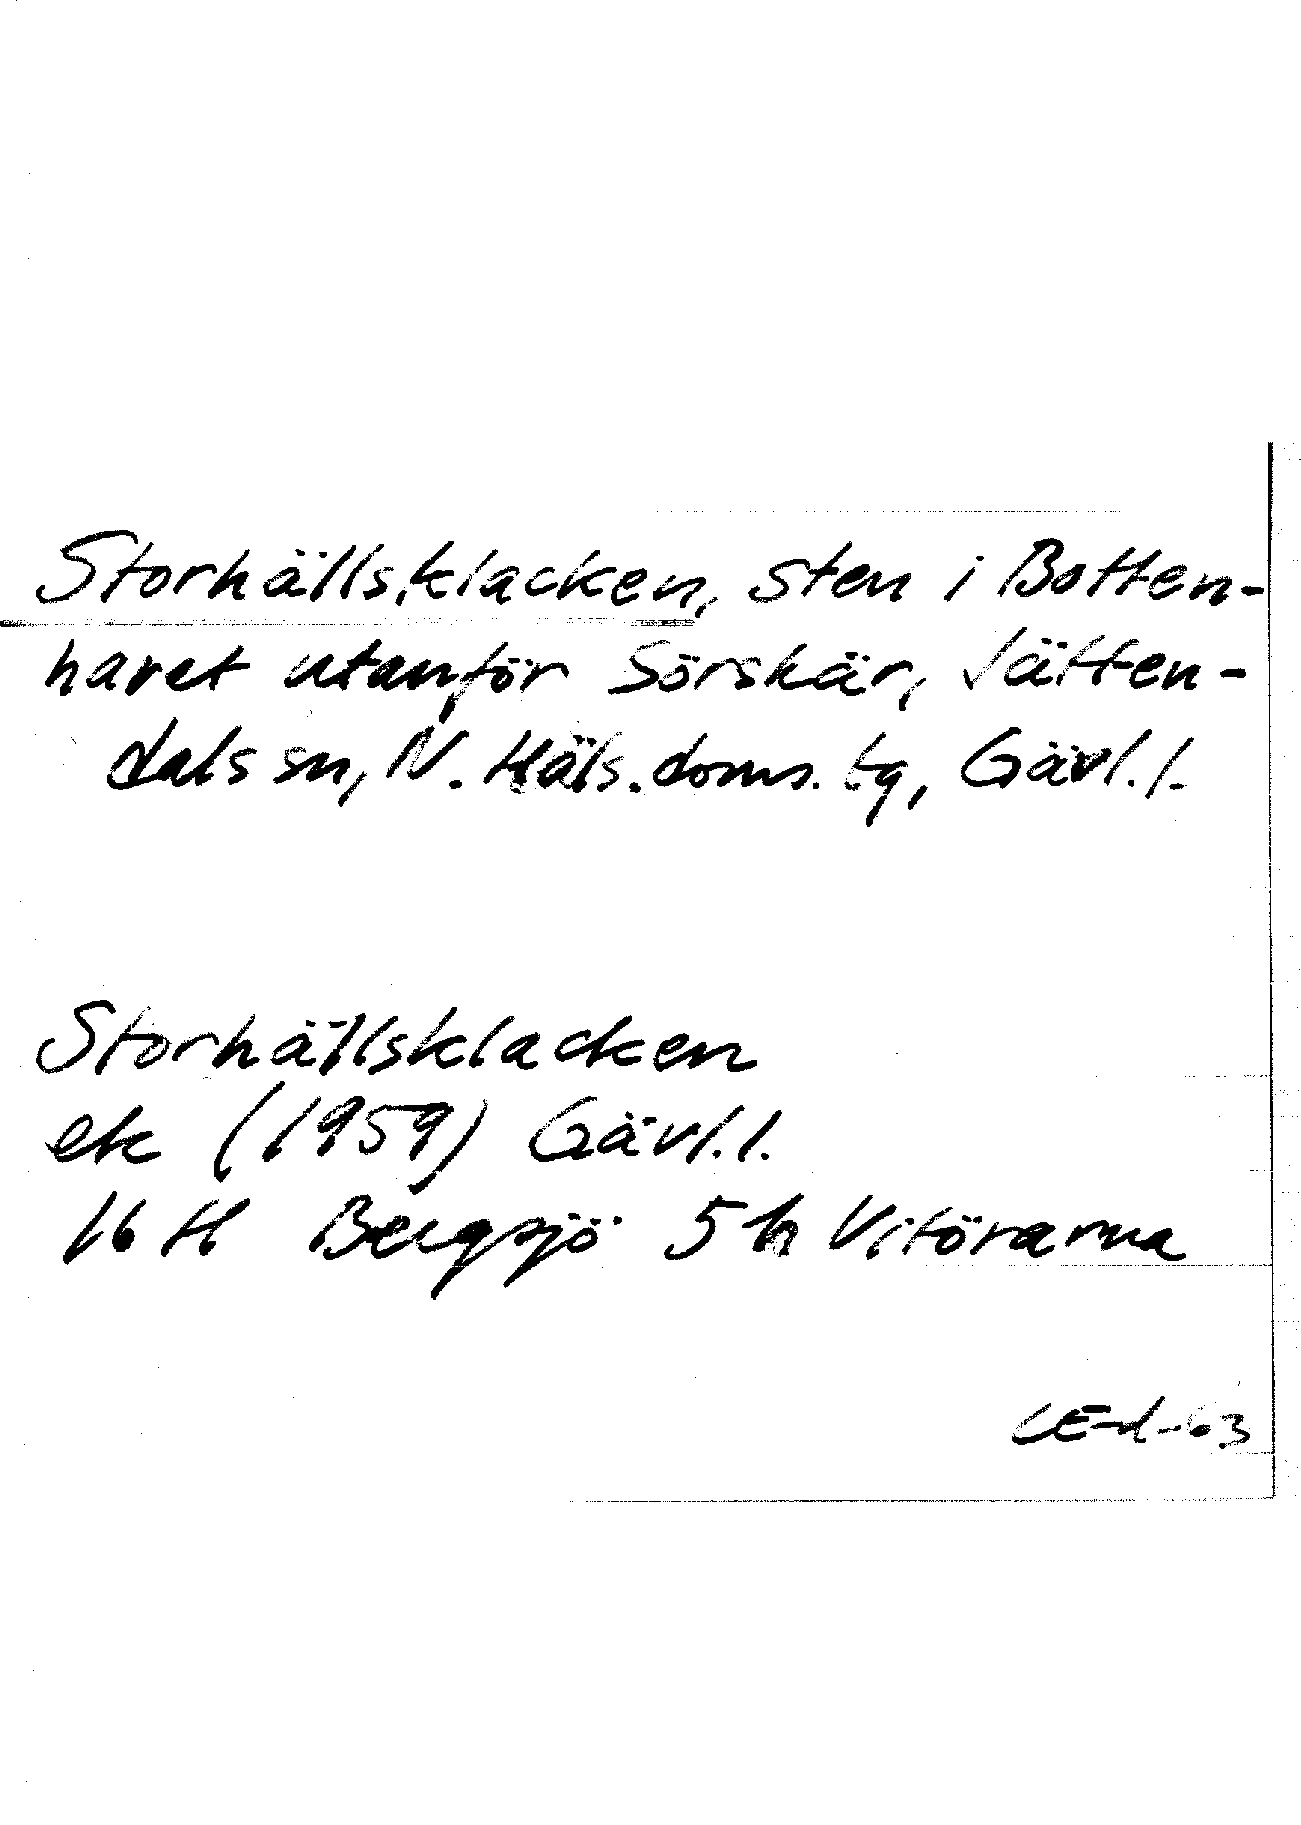 Storhällsklacken, sten i Botten-
havet utanför Sörskär, Jätten-
dals sn, N. Häls. doms. tg, Gävl. l.
Storhällsklacken
ek (1959) Gävl. l.
16 H Bergsjö 5 h Vitörarna
CE-d-63